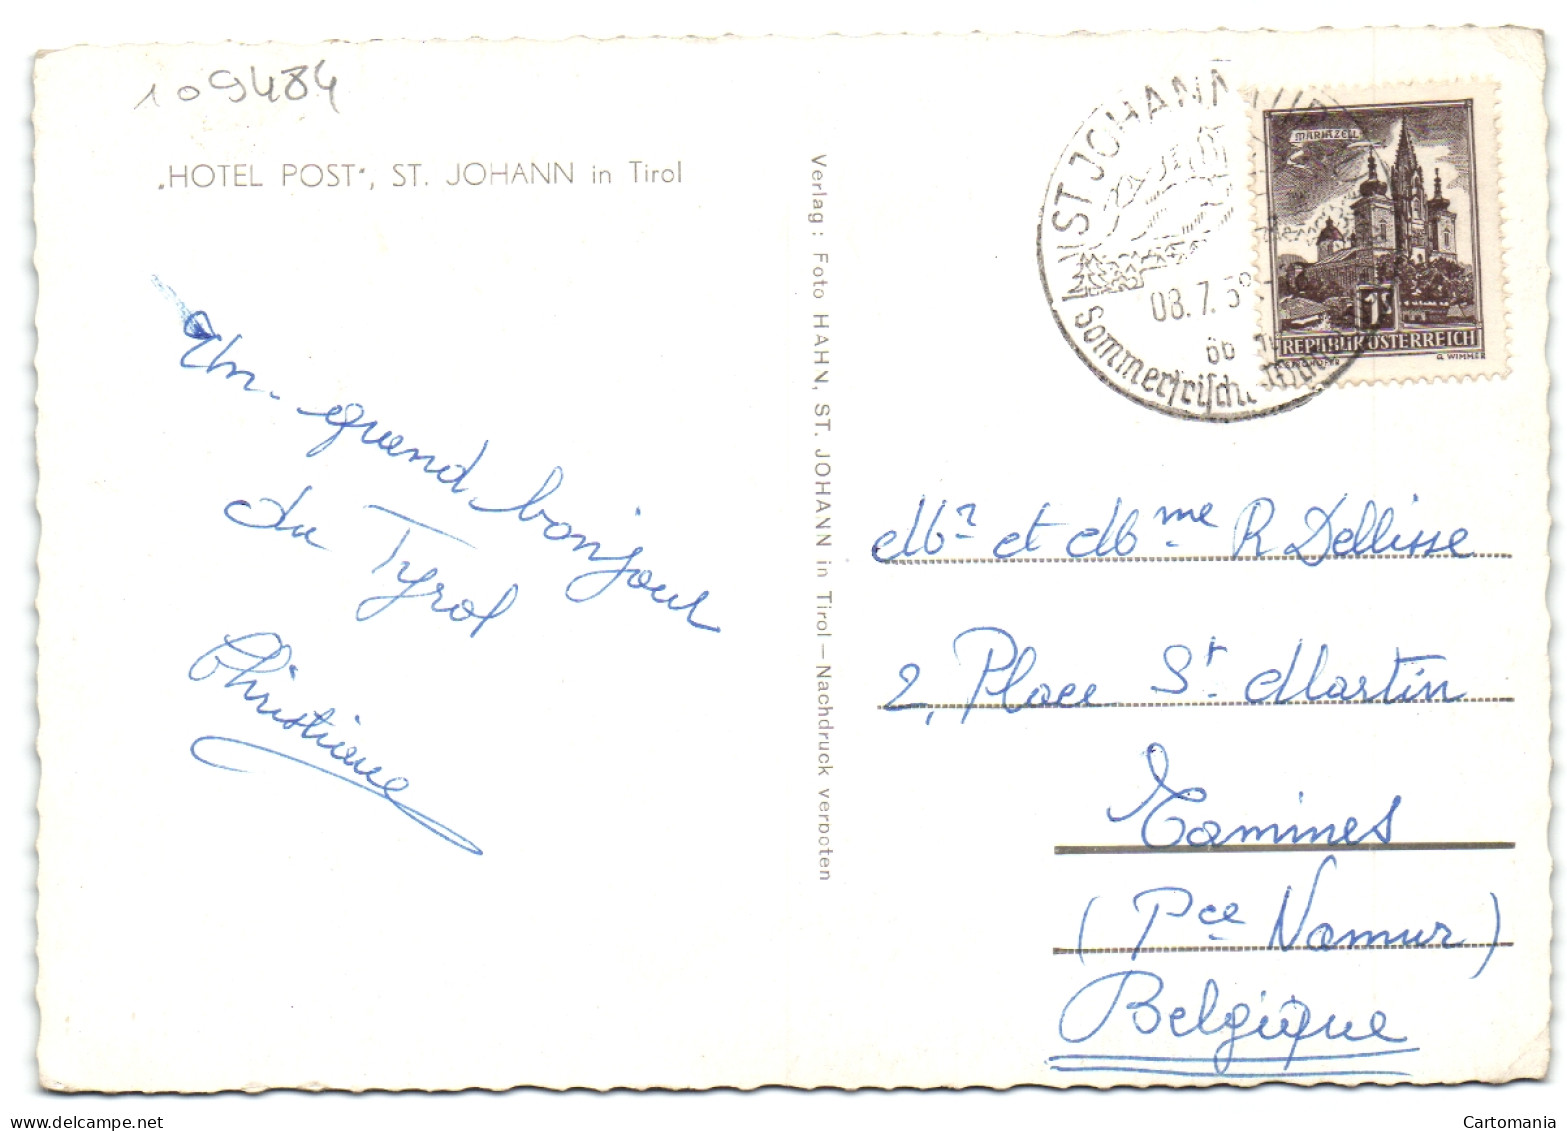 109484
„HOTEL POST“, ST. JOHANN in Tirol
Un grand bonjour
du Tyrol
Christiane
Verlag: Foto HAHN, ST. JOHANN in Tirol — Nachdruck verboten
ST JOHANN
08.7.59
Sommerfrische
MARIAZELL
1S
REPUBLIK ÖSTERREICH
G. WIMMER
Mr et Mme R Dellisse
2, Place St Martin
Tamines
(Pce Namur)
Belgique
www.delcampe.net
Cartomania